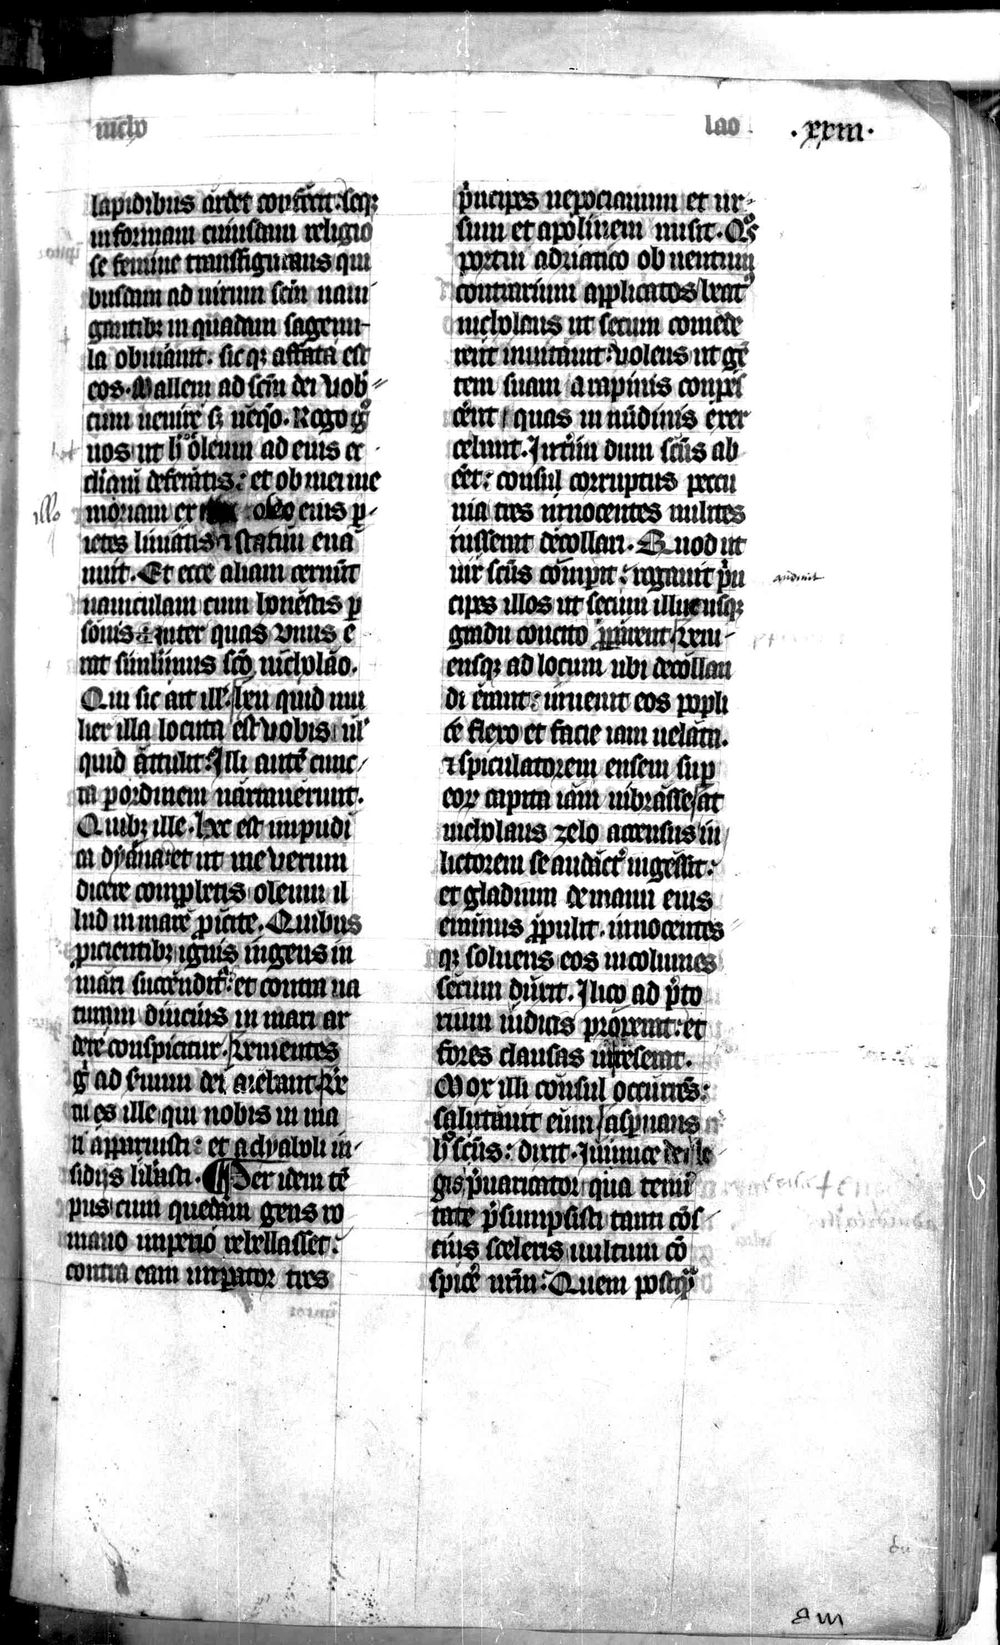 nicho
lao
.xxiii.
lapidibus ardet confecit. seq3
in formam cuiusdam religio
se femine transfigurans qui
busdam ad virum scm navi
gantib3 in quadam sagenu-
la obuiauit. sicq3 affata est
eos. Mallem ad scm dei vob
cum uenire s3 neq̃o. Rogo gͦ
uos ut hͦ oleum ad eius ec
cliam deferatis: et ob mei me
moriam ex oleo eius p-
ietes liniatis ⁊ statim eua
nuit. Et ecce aliam cernũt
nauiculam cum honestis p
sonis inter quas vnus e
rat simlimus sco nicholao.
Qui sic ait ill. heu quid mu
lier illa locuta est vobis ul
quid attulit. Illi autẽ cunc
ta p ordinem narrauerunt.
Quib3 ille. hec est impudi
ca dyana. et ut me verum
dicere compbetis oleum il
lud in mare pícite. Quibus
picientib3 ignis ingens in
mari succendit. et contra na
turam diucius in mari ar
dere conspicitur. Uenientes
g ad seruum dei aiebant. Ue
re tu es ille qui nobis in ma
ri apparuisti: et a dyaboli in-
sidijs libasti. Per idem tẽ
pus cum quedam gens ro
mano imperio rebellasset:
contra eam impator tres
illo
pncipes nepocianum et ur-
sum et apolinem misit. Qͦs
portui adriatico ob uentum
contrarium applicatos beat
nicholaus ut secum comede
rent inuitauit: volens ut gẽ
tem suam a rapinis compes
cerent quas in nũdinis exer
cebant. Intim dum scũs ab
eet: consul corruptus peccu
nia tres innocentes milites
iusserat decollari. Quod ut
uir scũs compit: rogauit pn
cipes illos ut secum illuc usq3
gradu concito ppirent. Ueni-
ensq3 ad locum ubi decollan
di erant: inuenit eos popli
te flexo et facie iam uelata.
⁊ spiculatorem ensem sup
eor capita iam uibrasse. at
nicholaus zelo accensus in
lictorem se audact ingessit:
et gladium de manu eius
eminus ppulit. innocentes
q3 soluens eos incolumes
secum duxit. Ilico ad pto
rium iudicis properat: et
fores clausas ui reserat.
Mox illi consul occurrẽs:
salutauit eum aspnans
hͦ scũs: dixit. Inimice dei le
gis puaricator qua temi
tate psumpsisti tanti cõs
cius sceleris uultum cõ
spice nrm: Quem postq
audiuit